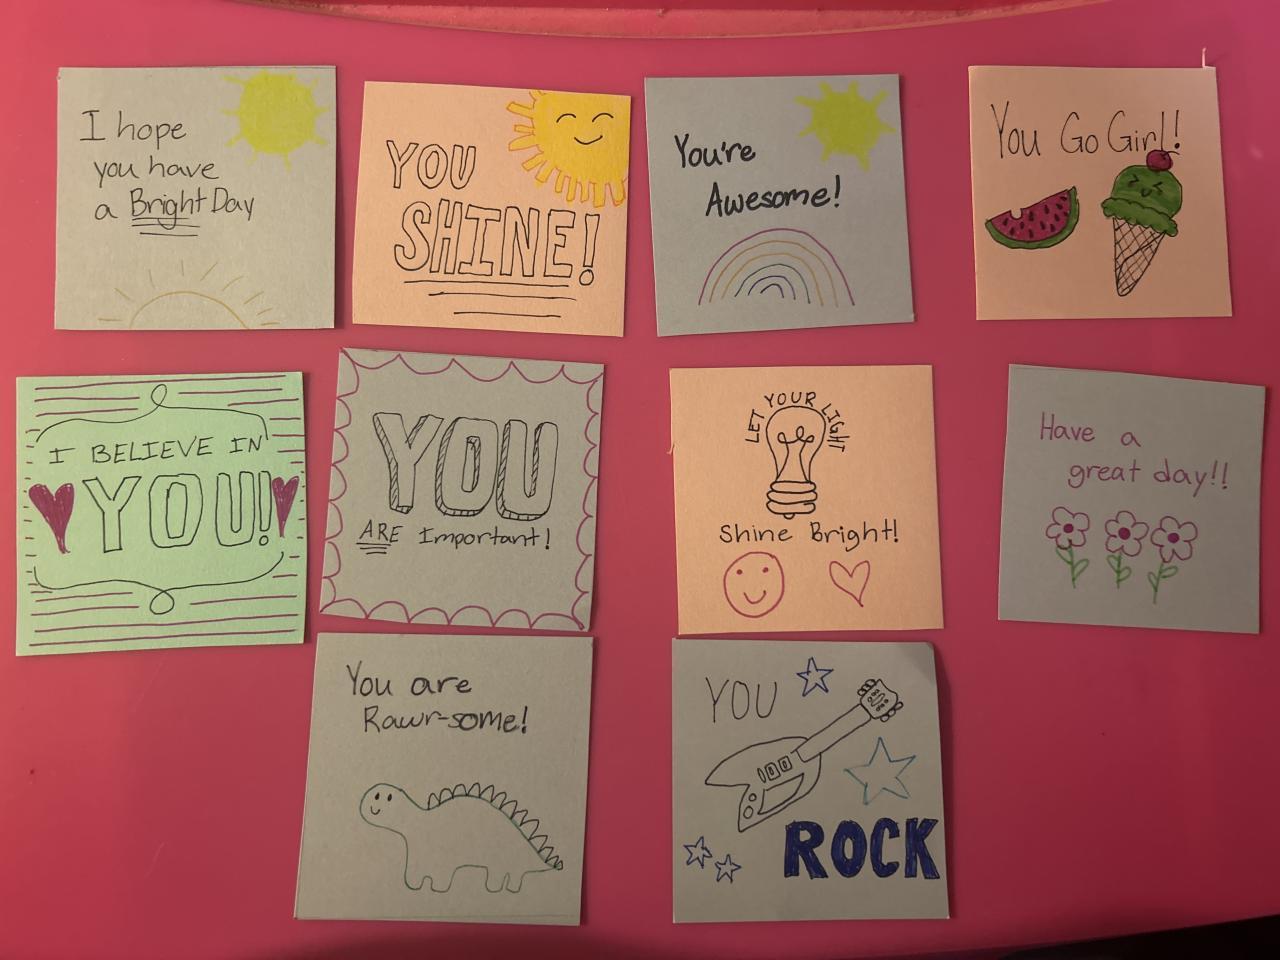 I hope
you have
a Bright Day
YOU
SHINE!
You're
Awesome!
You Go Girl!
I BELIEVE IN
YOU!
YOU
ARE Important!
LET YOUR LIGHT
Shine Bright!
Have a
great day!!
You are
Rawr-some!
YOU
ROCK